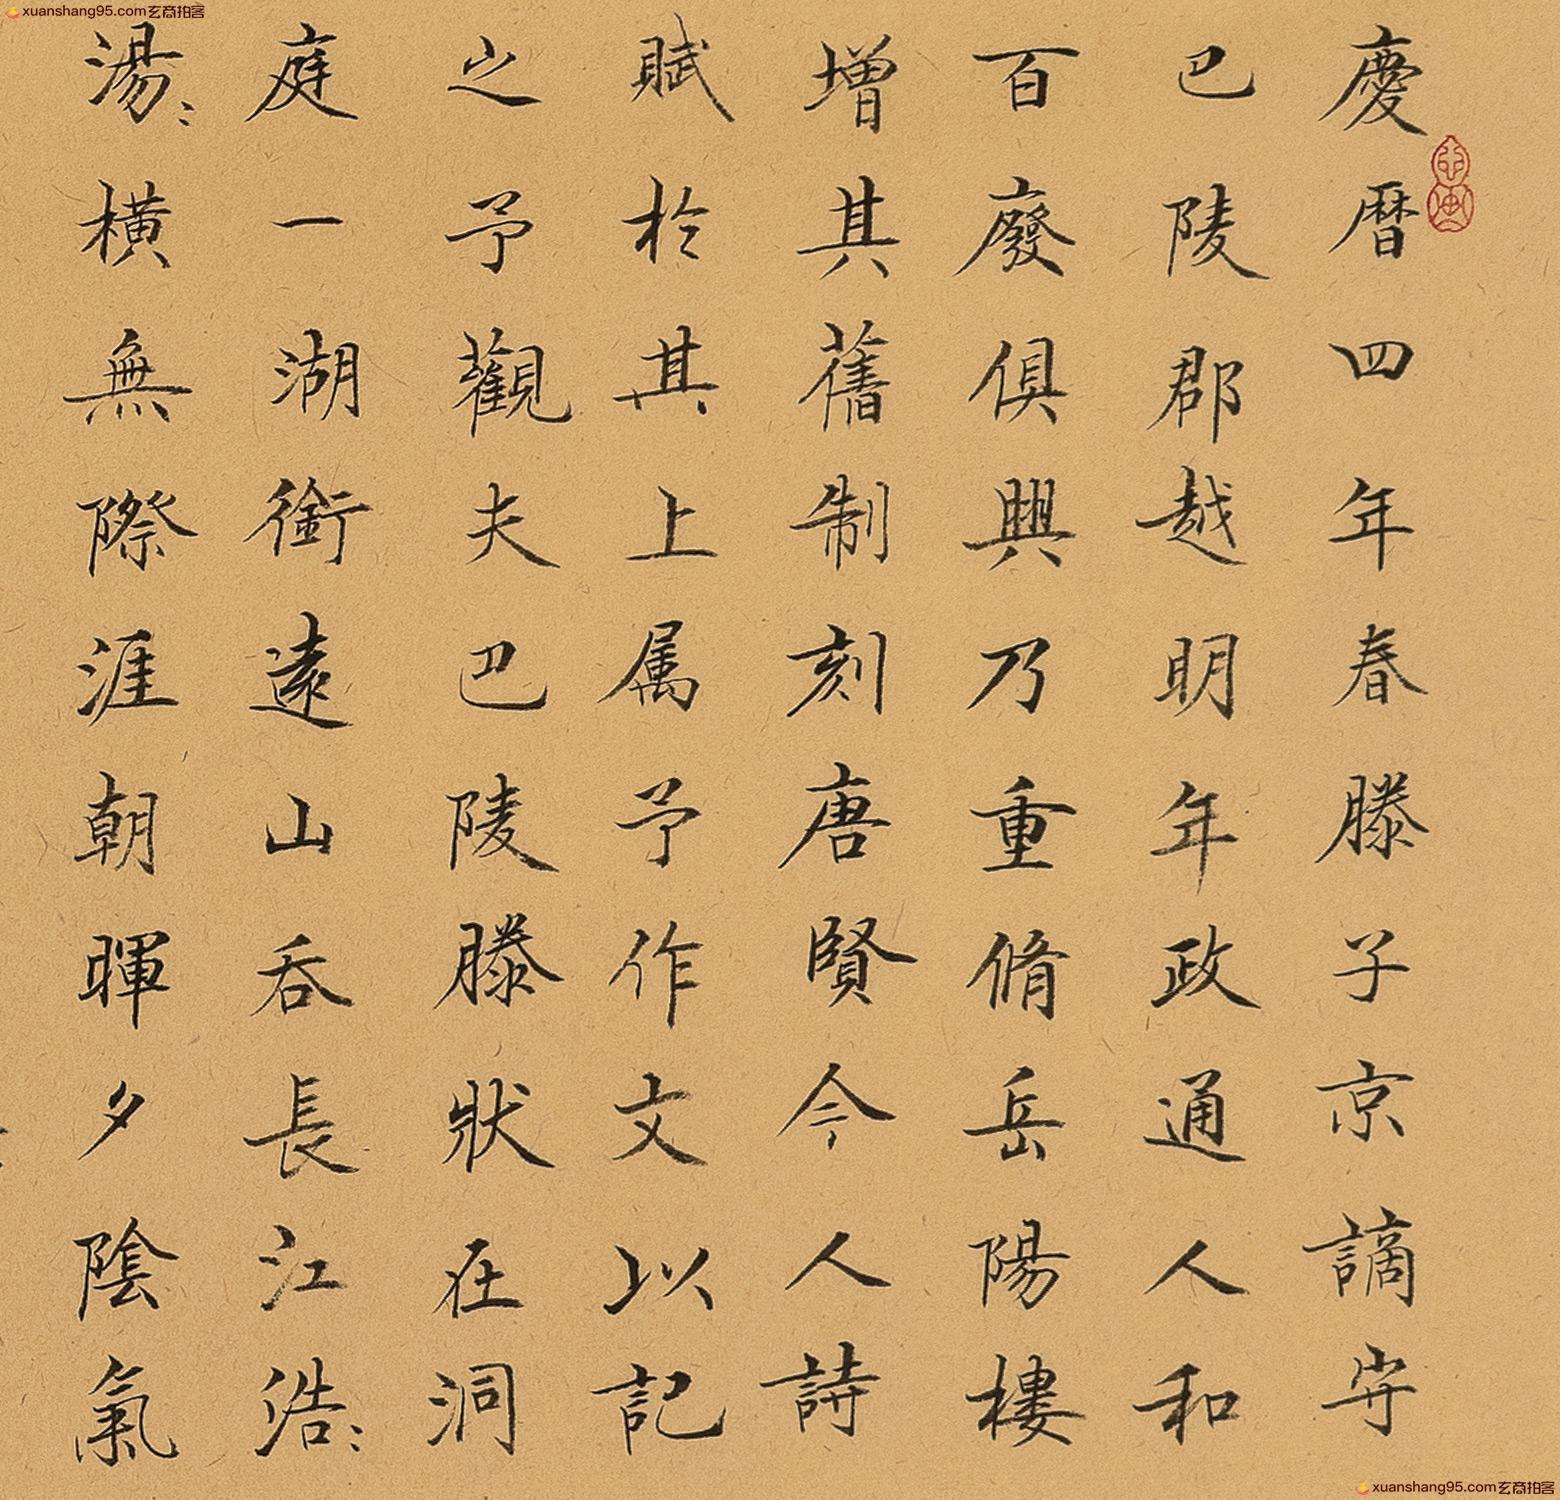 xuanshang95.com玄商拍客
慶曆四年春滕子京謫守
巴陵郡越明年政通人和
百廢俱興乃重脩岳陽樓
增其舊制刻唐賢今人詩
賦於其上属予作文以記
之予觀夫巴陵滕狀在洞
庭一湖銜遠山吞長江浩〻
湯〻橫無際涯朝暉夕陰氣
xuanshang95.com玄商拍客